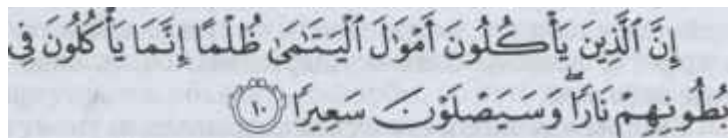 إِنَّ ٱلَّذِينَ يَأْكُلُونَ أَمْوَٰلَ ٱلْيَتَٰمَىٰ ظُلْمًا إِنَّمَا يَأْكُلُونَ فِى
بُطُونِهِمْ نَارًا ۖ وَسَيَصْلَوْنَ سَعِيرًا ١٠